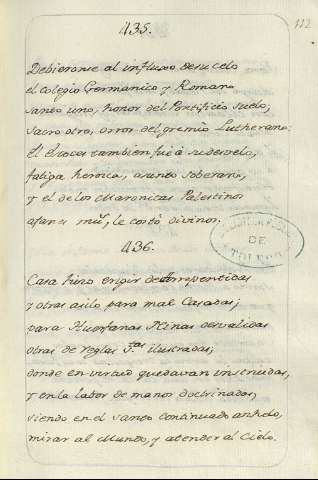 435.
112
Debieronse al influxo desu celo
el Colegio Germanico y Romano
santo uno, honor del Pontificio suelo,
sacro otro, orror del gremio Lutherano;
El Escoces tambien fuè à su desvelo,
fatiga heroica, asunto soberano,
y el de los Maronitas Palestinos
afanes mil, le costò divinos.
DE
TOLEDO
436.
Casa hizo erigir de Arrepentidas
y otras asilo para mal Casadas;
para Huerfanas Niñas desvalidas
otras de reglas s.tas ilustradas;
donde en virtud quedavan instruidas,
y en la labor de manos doctrinadas,
siendo en el santo Continuado anhelo,
mirar al Mundo, y atender al Cielo.